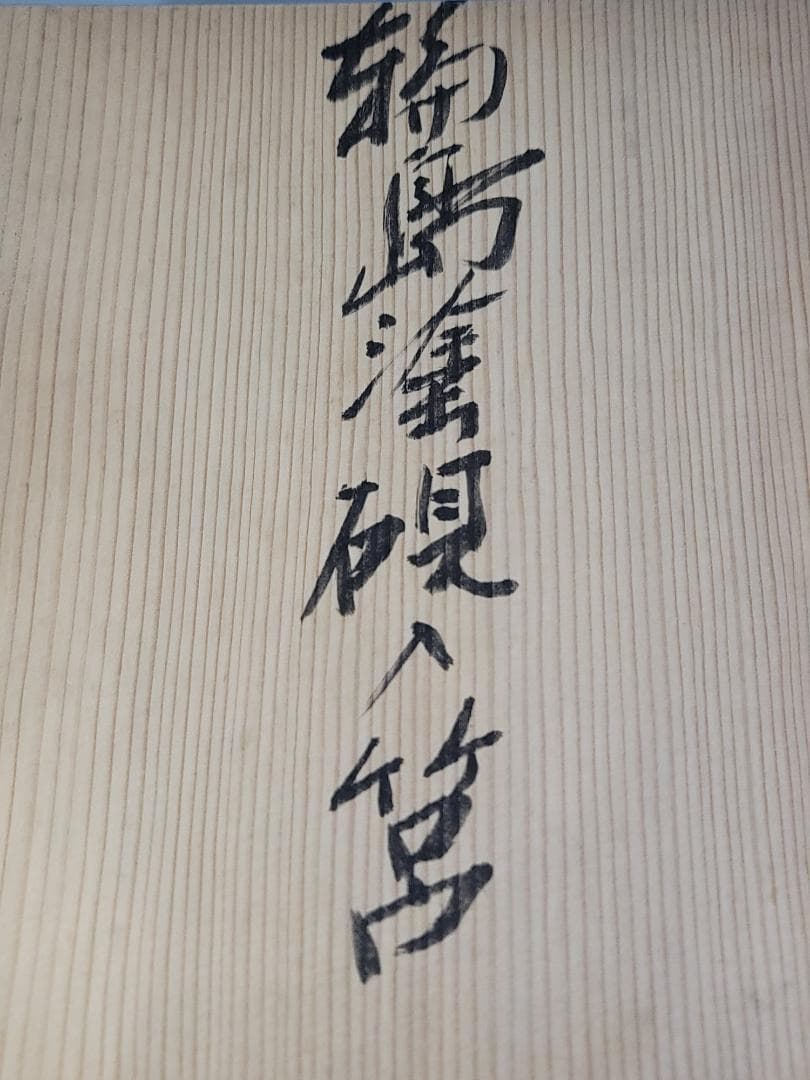 輪島塗硯入筥